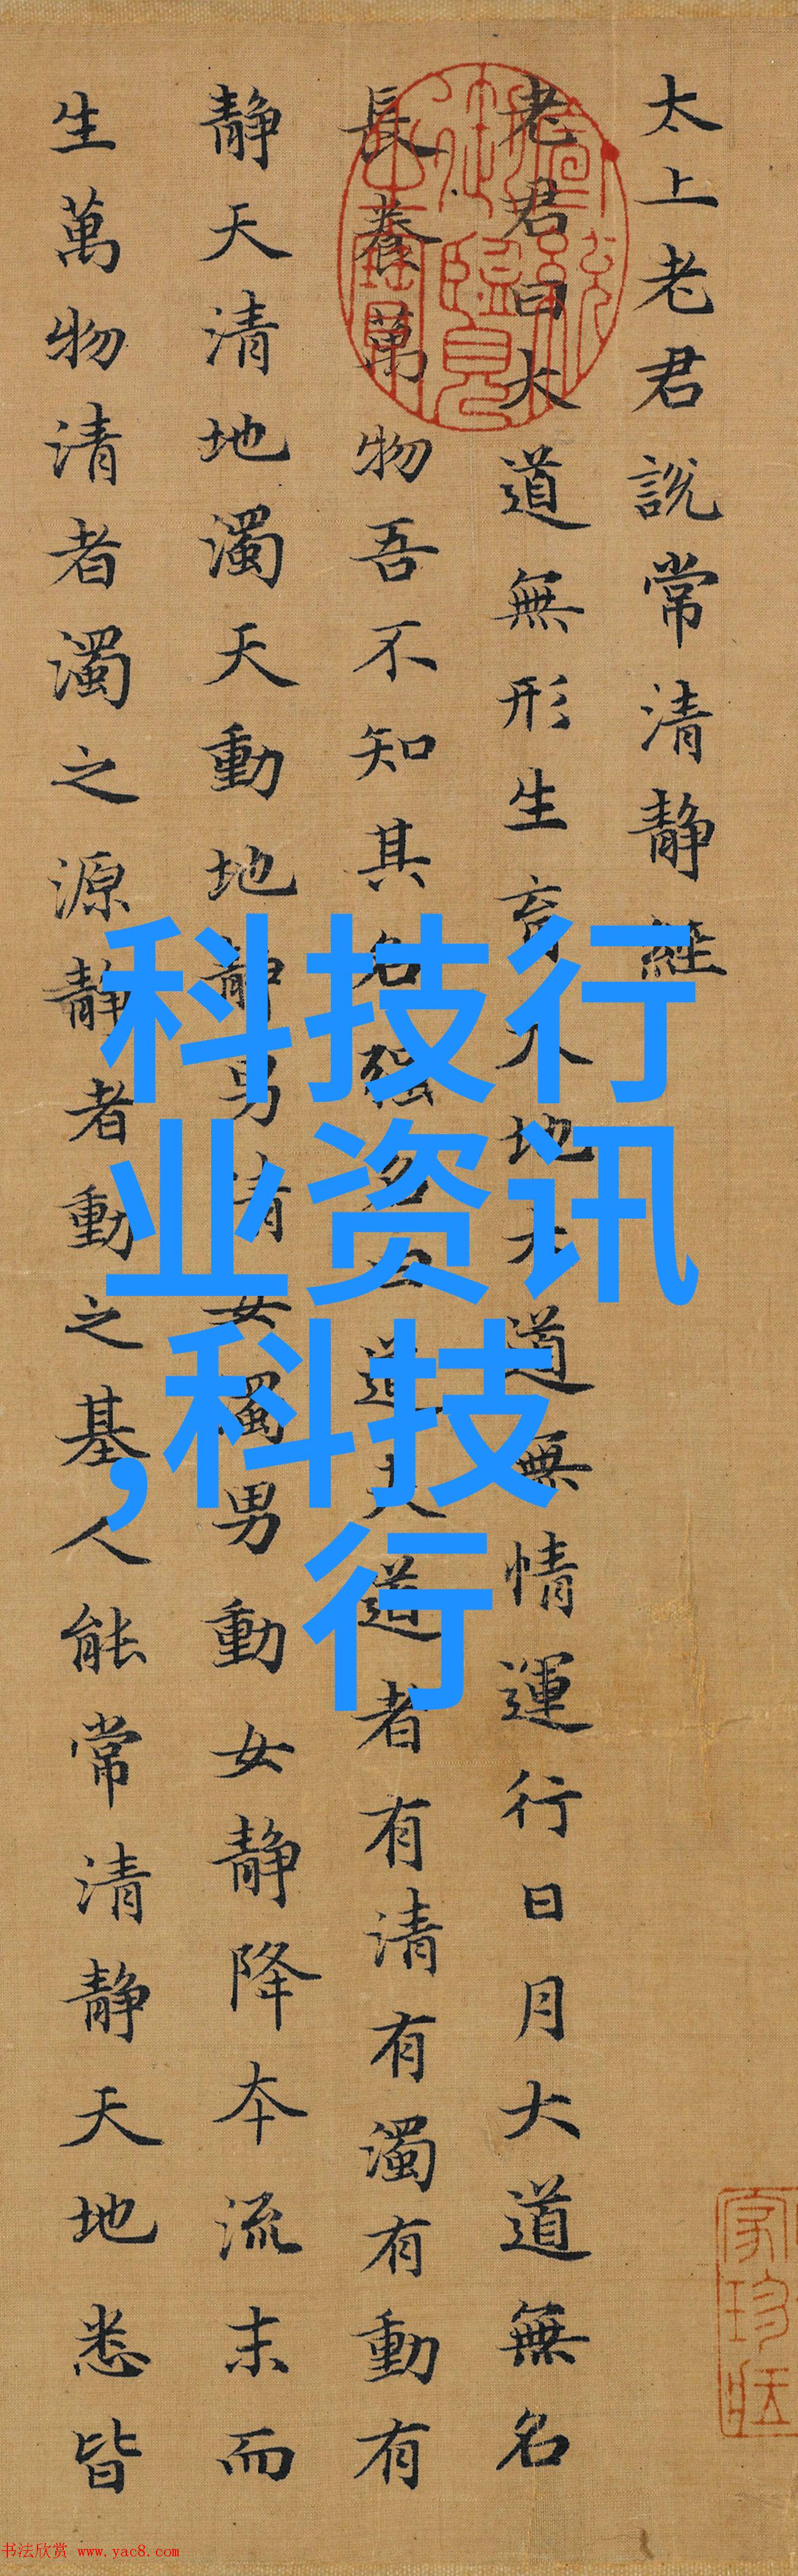 太上老君說常清静經
老君曰大道無形生育天地大道無情運行日月大道無名
長養萬物吾不知其名强名曰道夫道者有清有濁有動有
静天清地濁天動地静男清女濁男動女静降本流末而
生萬物清者濁之源静者動之基人能常清静天地悉皆
宣統
御覽
之寶
科技行
业资讯
,科技
行
书法欣赏 www.yac8.com